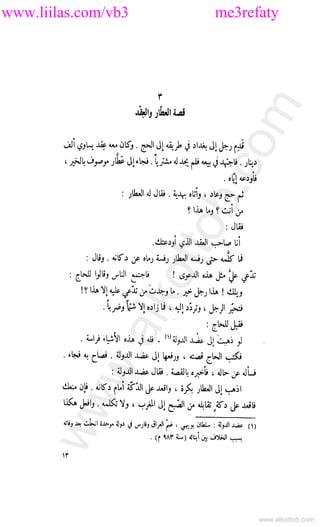 www.liilas.com/vb3 me3refaty
٣
قصة العطّار والعِقْد
قَدِم رجل إلى بغداد في طريقه إلى الحج . وكان معه عِقد يساوي ألف
دينار . فاجتهد في بيعه فلم يجد له مشترياً . فجاء إلى عَطّار موصوف بالخير ،
فأودعه إيّاه .
ثم حج وعاد ، وأتاه بهدية . فقال له العطار :
من أنت ؟ وما هذا ؟
فقال :
أنا صاحب العقد الذي أودعتك.
فما كلّمه حتى رفسه العطار رفسة رماه عن دكانه . وقال :
تدّعي عليّ مثل هذه الدعوى ! فاجتمع الناس وقالوا للحاج :
ويلك ! هذا رجل خير . ما وجدت من تدّعي عليه إلا هذا ؟!
فتحيّر الرجل ، وتردّد إليه ، فما زاده إلا شتماً وضرباً .
فقيل للحاج :
لو ذهبتَ إلى عضد الدولة (١) . فله في هذه الأشياء فراسة .
فكتب الحاج قصته ، ورفعها إلى عضد الدولة . فصاح به . فجاء .
فسأله عن حاله ، فأخبره بالقصة . فقال عضد الدولة :
اذهب إلى العطار بكرة ، واقعد على الدكّة أمام دكانه . فإن منعك
فاقعد على دكة تقابله من الصبح إلى المغرب ، ولا تكلمه . وافعل هكذا
(١) عضد الدولة : سلطان بويهي ، ضم العراق وفارس في دولة موحدة انحلّت بعد وفاته
بسبب الخلاف بين أبنائه (سنة ٩٨٣ م) .
١٣
www.alkottob.com
www.alkottob.com